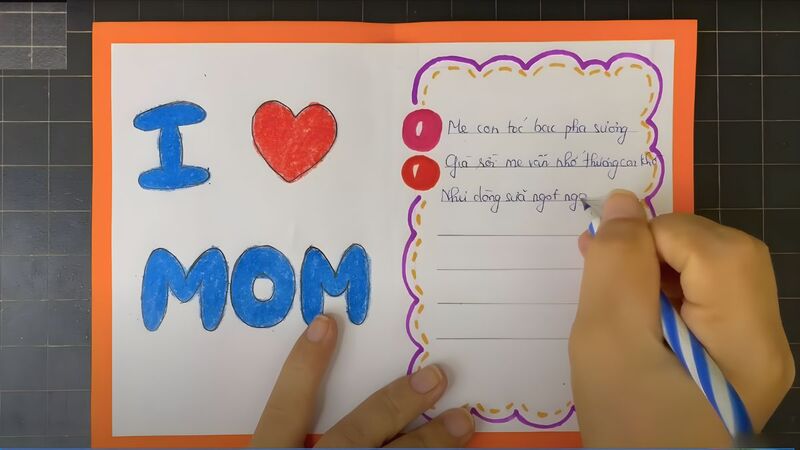 I
MOM
Mẹ con tóc bạc pha sương
Già rồi mẹ vẫn nhớ thương con
Như dòng suối ngọt